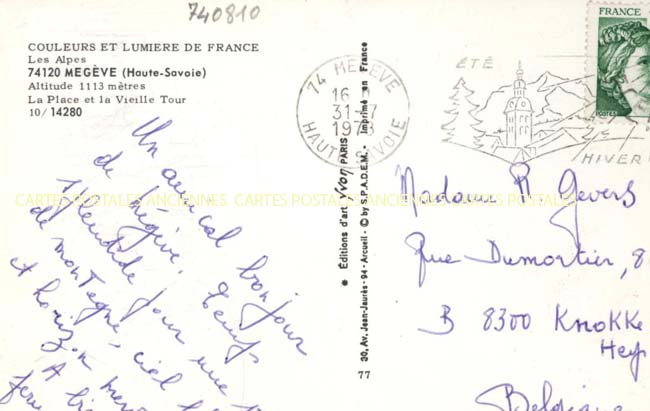 740810
COULEURS ET LUMIERE DE FRANCE
Les Alpes
74120 MEGÈVE (Haute-Savoie)
Altitude 1113 mètres
La Place et la Vieille Tour
10/ 14280
Un amical bonjour
de Mégève. Temps
splendide pour une
de montagne, ciel
et horizon
A bi
★ Éditions d'art Yvon PARIS
30, Av. Jean-Jaurès - 94 - Arcueil - © by S.P.A.D.E.M. - Imprimé en France
77
74 MEGEVE
16 H
31-7
197
HAUTE SAVOIE
ÉTÉ
HIVER
FRANCE
POSTES
Madame R. Gevers
Rue Dumortier, 8
B 8300 Knokke
Hey
Belgique
CARTES POSTALES ANCIENNES CARTES POSTALES ANCIENNES CARTES POSTALES